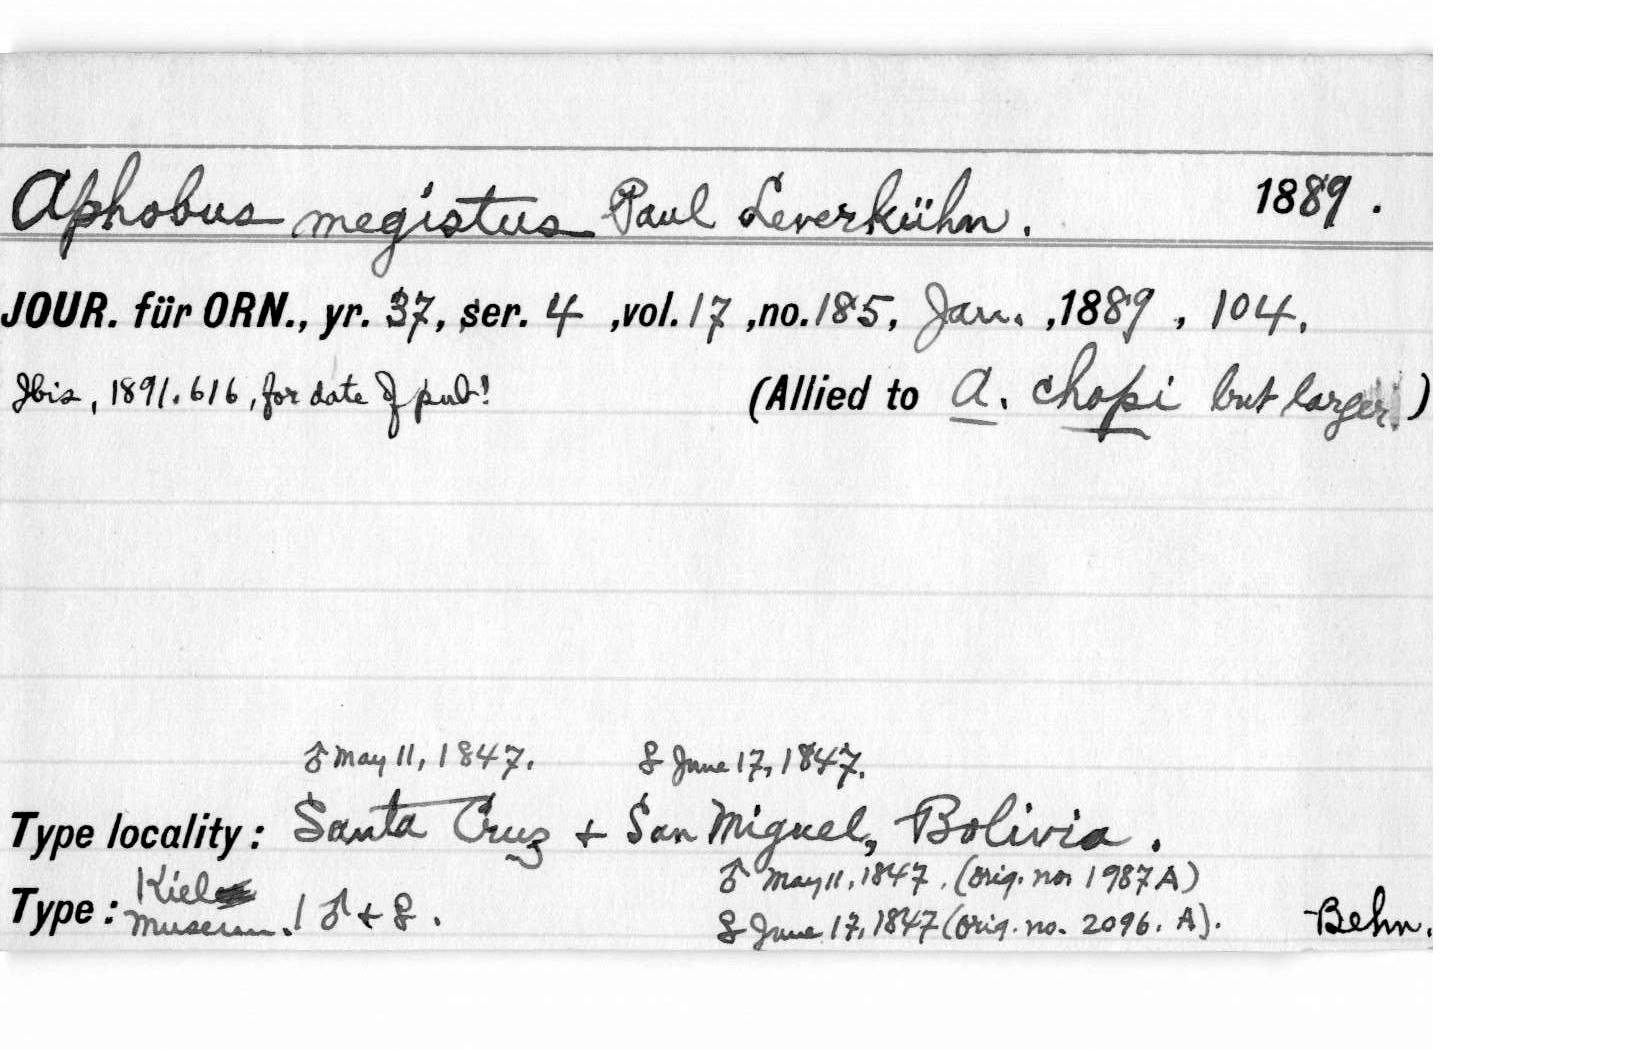 Aphobus megistus Paul Leverkühn. 1889.
JOUR. für ORN., yr. 37, ser. 4 ,vol. 17 ,no. 185, Jan. ,1889 , 104.
Ibis, 1891. 616, for date of pub! (Allied to A. chopi but larger.)
♂ May 11, 1847. ♀ June 17, 1847.
Type locality: Santa Cruz + San Miguel, Bolivia.
♂ May 11, 1847. (orig. no. 1987 A)
Type: Kiel Museum. 1 ♂ + ♀. ♀ June 17, 1847 (orig. no. 2096. A). Behn.